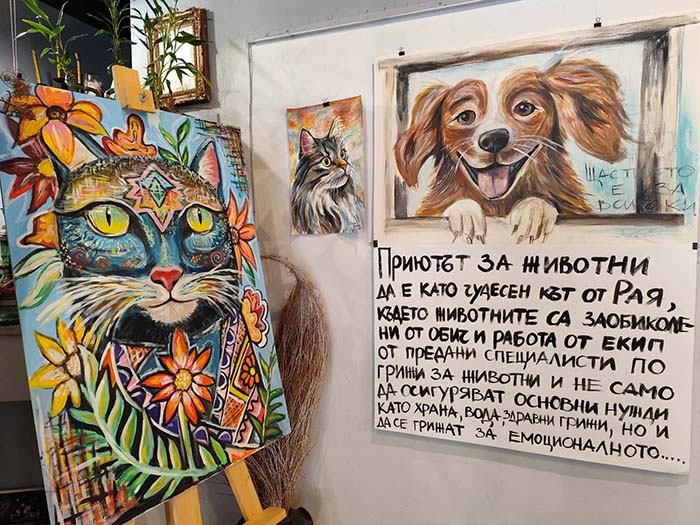 ЩАСТИЕТО
Е ЗА
ВСИЧКИ
ПРИЮТЪТ ЗА ЖИВОТНИ
ДА Е КАТО ЧУДЕСЕН КЪТ ОТ РАЯ,
КЪДЕТО ЖИВОТНИТЕ СА ЗАОБИКОЛЕ
НИ ОТ ОБИЧ И РАБОТА ОТ ЕКИП
ОТ ПРЕДАНИ СПЕЦИАЛИСТИ ПО
ГРИЖИ ЗА ЖИВОТНИ И НЕ САМО
ДА ОСИГУРЯВАТ ОСНОВНИ НУЖДИ
КАТО ХРАНА, ВОДА, ЗДРАВНИ ГРИЖИ, НО И
ДА СЕ ГРИЖАТ ЗА ЕМОЦИОНАЛНОТО.....